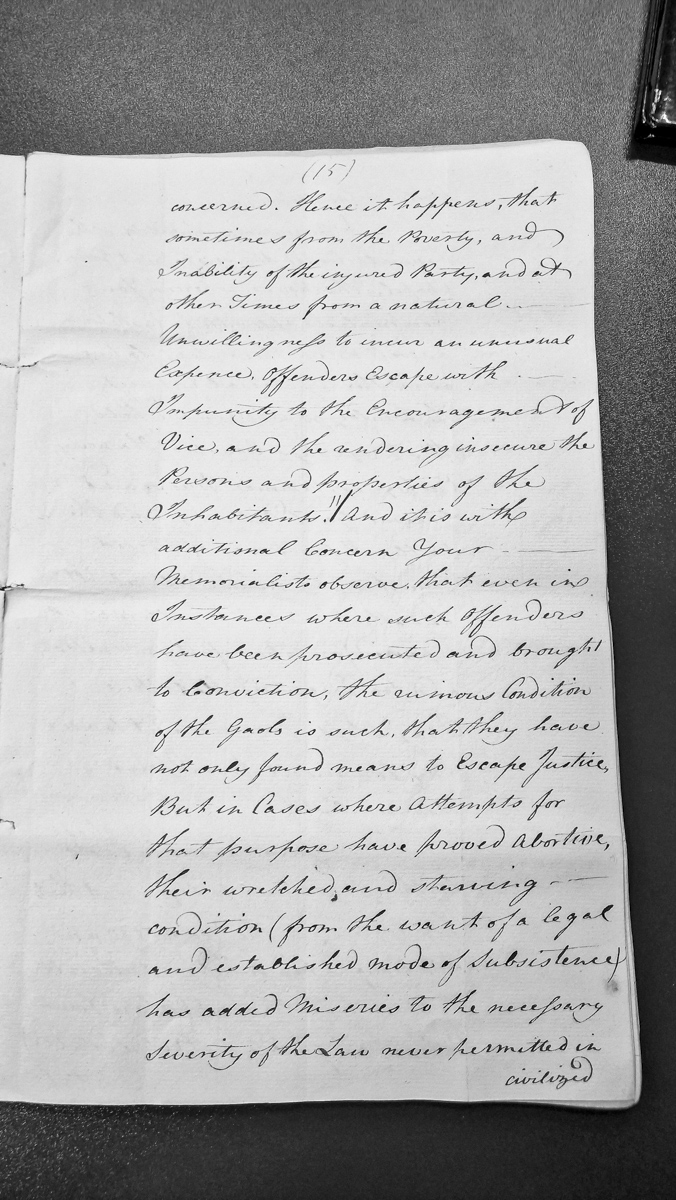 (15)
concerned. Hence it happens, that
sometimes from the Poverty, and
Inability of the injured Party, and at
other Times from a natural
Unwillingness to incur an unusual
Expence, Offenders Escape with
Impunity to the Encouragement of
Vice, and the rendering insecure the
Persons and properties of the
Inhabitants." And it is with
additional Concern Your
Memorialists observe, that even in
Instances where such Offenders
have been prosecuted and brought
to Conviction, the ruinous Condition
of the Gaols is such, that they have
not only found means to Escape Justice,
But in Cases where attempts for
that purpose have proved Abortive,
their wretched, and starving
condition (from the want of a legal
and established mode of Subsistence)
has added Miseries to the necessary
Severity of the Law never permitted in
civilized